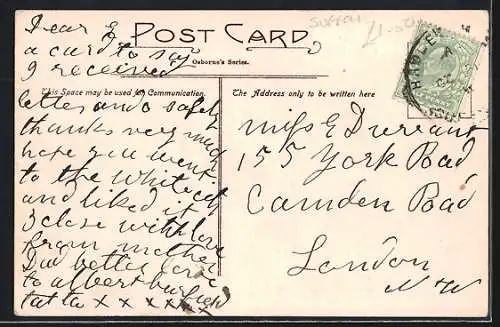 Dear E
a card to say
I received
letter and o safely
thanks very much
hope you went
to the White City
and liked it
I close with love
from mother
Dad better love
to albert
ta ta x x x x x x
POST CARD
Osborne's Series.
This Space may be used for Communication.
The Address only to be written here
Suffolk
£1-50
HADLEIGH
Miss E Durrant
155 York Road
Camden Road
London
N W